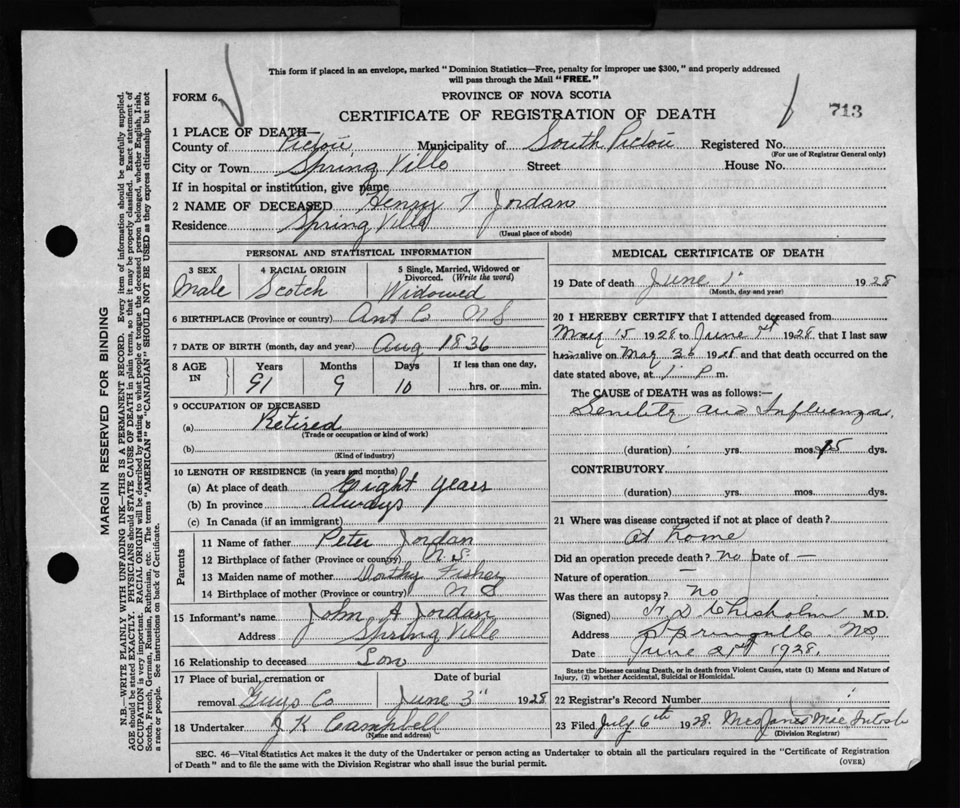 This form if placed in an envelope, marked "Dominion Statistics—Free, penalty for improper use $300," and properly addressed
will pass through the Mail "FREE."
FORM 6.
PROVINCE OF NOVA SCOTIA
CERTIFICATE OF REGISTRATION OF DEATH
713
1 PLACE OF DEATH—
County of Pictou Municipality of South Pictou Registered No.
(For use of Registrar General only)
City or Town Spring Ville Street House No.
If in hospital or institution, give name
2 NAME OF DECEASED Henry T Jordan
Residence Spring Ville
(Usual place of abode)
PERSONAL AND STATISTICAL INFORMATION
3 SEX 4 RACIAL ORIGIN 5 Single, Married, Widowed or Divorced. (Write the word)
Male Scotch Widowed
6 BIRTHPLACE (Province or country) Ant C NS
7 DATE OF BIRTH (month, day and year) Aug 1836
8 AGE IN Years Months Days If less than one day,
91 9 10 hrs. or min.
9 OCCUPATION OF DECEASED
(a) Retired
(Trade or occupation or kind of work)
(b)
(Kind of industry)
10 LENGTH OF RESIDENCE (in years and months)
(a) At place of death Eight years
(b) In province always
(c) In Canada (if an immigrant)
Parents
11 Name of father Peter Jordan
12 Birthplace of father (Province or country) N.S.
13 Maiden name of mother Dorthy Fisher
14 Birthplace of mother (Province or country) N S
15 Informant's name John A Jordan
Address Spring Ville
16 Relationship to deceased Son
17 Place of burial, cremation or removal Date of burial
Guys Co June 3" 1928
18 Undertaker J K Campbell
(Name and address)
MEDICAL CERTIFICATE OF DEATH
19 Date of death June 1" 1928
(Month, day and year)
20 I HEREBY CERTIFY that I attended deceased from
May 15 1928 to June 1928 that I last saw
him alive on May 30 1928 and that death occurred on the
date stated above, at 1 P m.
The CAUSE OF DEATH was as follows:—
Senility and Influenza
(duration) yrs. mos. 15 dys.
CONTRIBUTORY
(duration) yrs. mos. dys.
21 Where was disease contracted if not at place of death?
at home
Did an operation precede death? no Date of —
Nature of operation —
Was there an autopsy? no
(Signed) D Chisholm M.D.
Address Springville NS
Date June 21st 1928.
State the Disease causing Death, or in death from Violent Causes, state (1) Means and Nature of
Injury, (2) whether Accidental, Suicidal or Homicidal.
22 Registrar's Record Number
23 Filed July 6th 1928 Mrs James MacIntosh
(Division Registrar)
SEC. 46—Vital Statistics Act makes it the duty of the Undertaker or person acting as Undertaker to obtain all the particulars required in the "Certificate of Registration
of Death" and to file the same with the Division Registrar who shall issue the burial permit. (OVER)
MARGIN RESERVED FOR BINDING
N.B.—WRITE PLAINLY WITH UNFADING INK—THIS IS A PERMANENT RECORD. Every item of information should be carefully supplied.
AGE should be stated EXACTLY. PHYSICIANS should STATE CAUSE OF DEATH in plain terms, so that it may be properly classified. Exact statement of
OCCUPATION is very important. RACIAL ORIGIN will be described by stating to what people or tongue the deceased person belonged, whether English, Irish,
Scotch, French, German, Russian, Ruthenian, etc. The terms "AMERICAN" or "CANADIAN" SHOULD NOT BE USED as they express citizenship but not
a race or people. See instructions on back of Certificate.